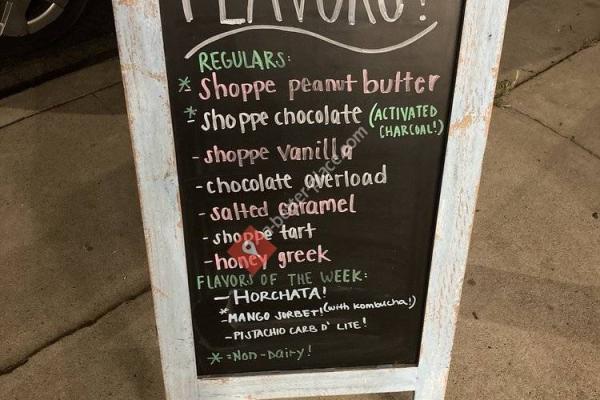 FLAVORS!
REGULARS:
* shoppe peanut butter
* - shoppe chocolate (ACTIVATED
CHARCOAL!)
- shoppe vanilla
- chocolate overload
- salted caramel
- shoppe tart
- honey greek
FLAVORS OF THE WEEK:
- HORCHATA!
* - MANGO SORBET! (with kombucha!)
- PISTACHIO CARB D' LITE!
* = Non-Dairy!